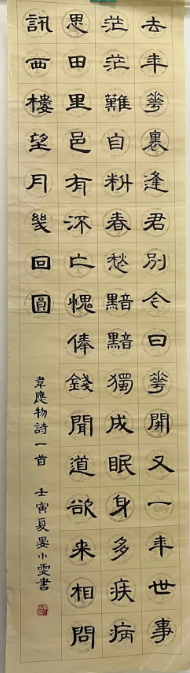 去年華裏逢君別今日華開又一年世事
茫茫難自料春愁黯黯獨成眠身多疾病
思田里邑有流亡愧俸錢聞道欲来相問
訊西樓望月幾回圓
韋應物詩一首 壬寅夏晏小雯書